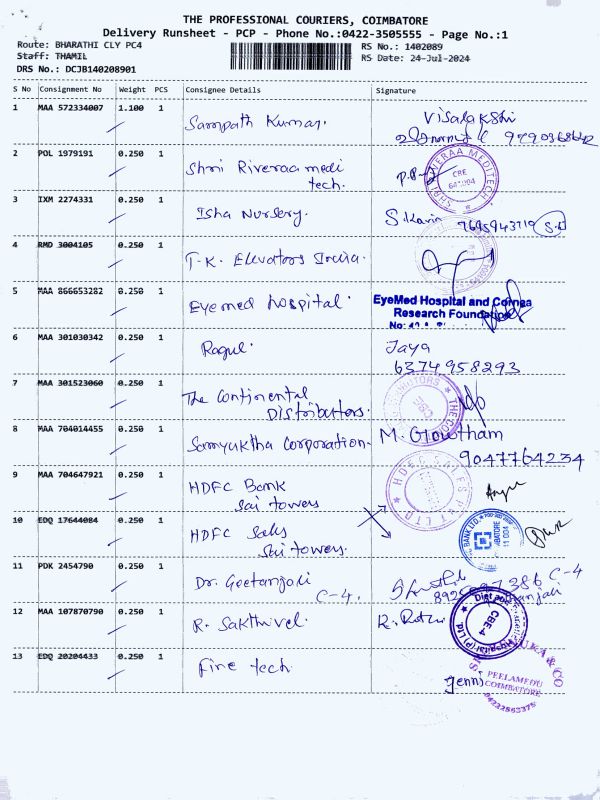 THE PROFESSIONAL COURIERS, COIMBATORE
Delivery Runsheet - PCP - Phone No.:0422-3505555 - Page No.:1
Route: BHARATHI CLY PC4
RS No.: 1402089
Staff: THAMIL
RS Date: 24-Jul-2024
DRS No.: DCJB140208901
S No Consignment No Weight PCS Consignee Details Signature
1 MAA 572334007 1.100 1 Sampath Kumar. Visalakshi
2 POL 1979191 0.250 1 Shri Riveraa medi
tech.
CBE
641004
3 IXM 2274331 0.250 1 Isha Nursery. S.Kavin 7695943719
4 RMD 3004105 0.250 1 T.K. Elevators India.
5 MAA 866653282 0.250 1 Eyemed hospital. EyeMed Hospital and Cornea
Research Foundation
6 MAA 301030342 0.250 1 Ragul. Jaya
6374958293
7 MAA 301523060 0.250 1 The Continental
Distributors.
8 MAA 704014455 0.250 1 Samyuktha Corporation. M. Gowtham
9047764234
9 MAA 704647921 0.250 1 HDFC Bank
Sai towers
HDFC SALES PVT LTD
10 EDQ 17644084 0.250 1 HDFC Sales
Sai towers.
BANK LTD.
11 PDK 2454790 0.250 1 Dr. Geetanjali
C-4. C-4
12 MAA 107870790 0.250 1 R. Sakthivel.
CBE-4
13 EDQ 20204433 0.250 1 Fine tech
PEELAMEDU
COIMBATORE